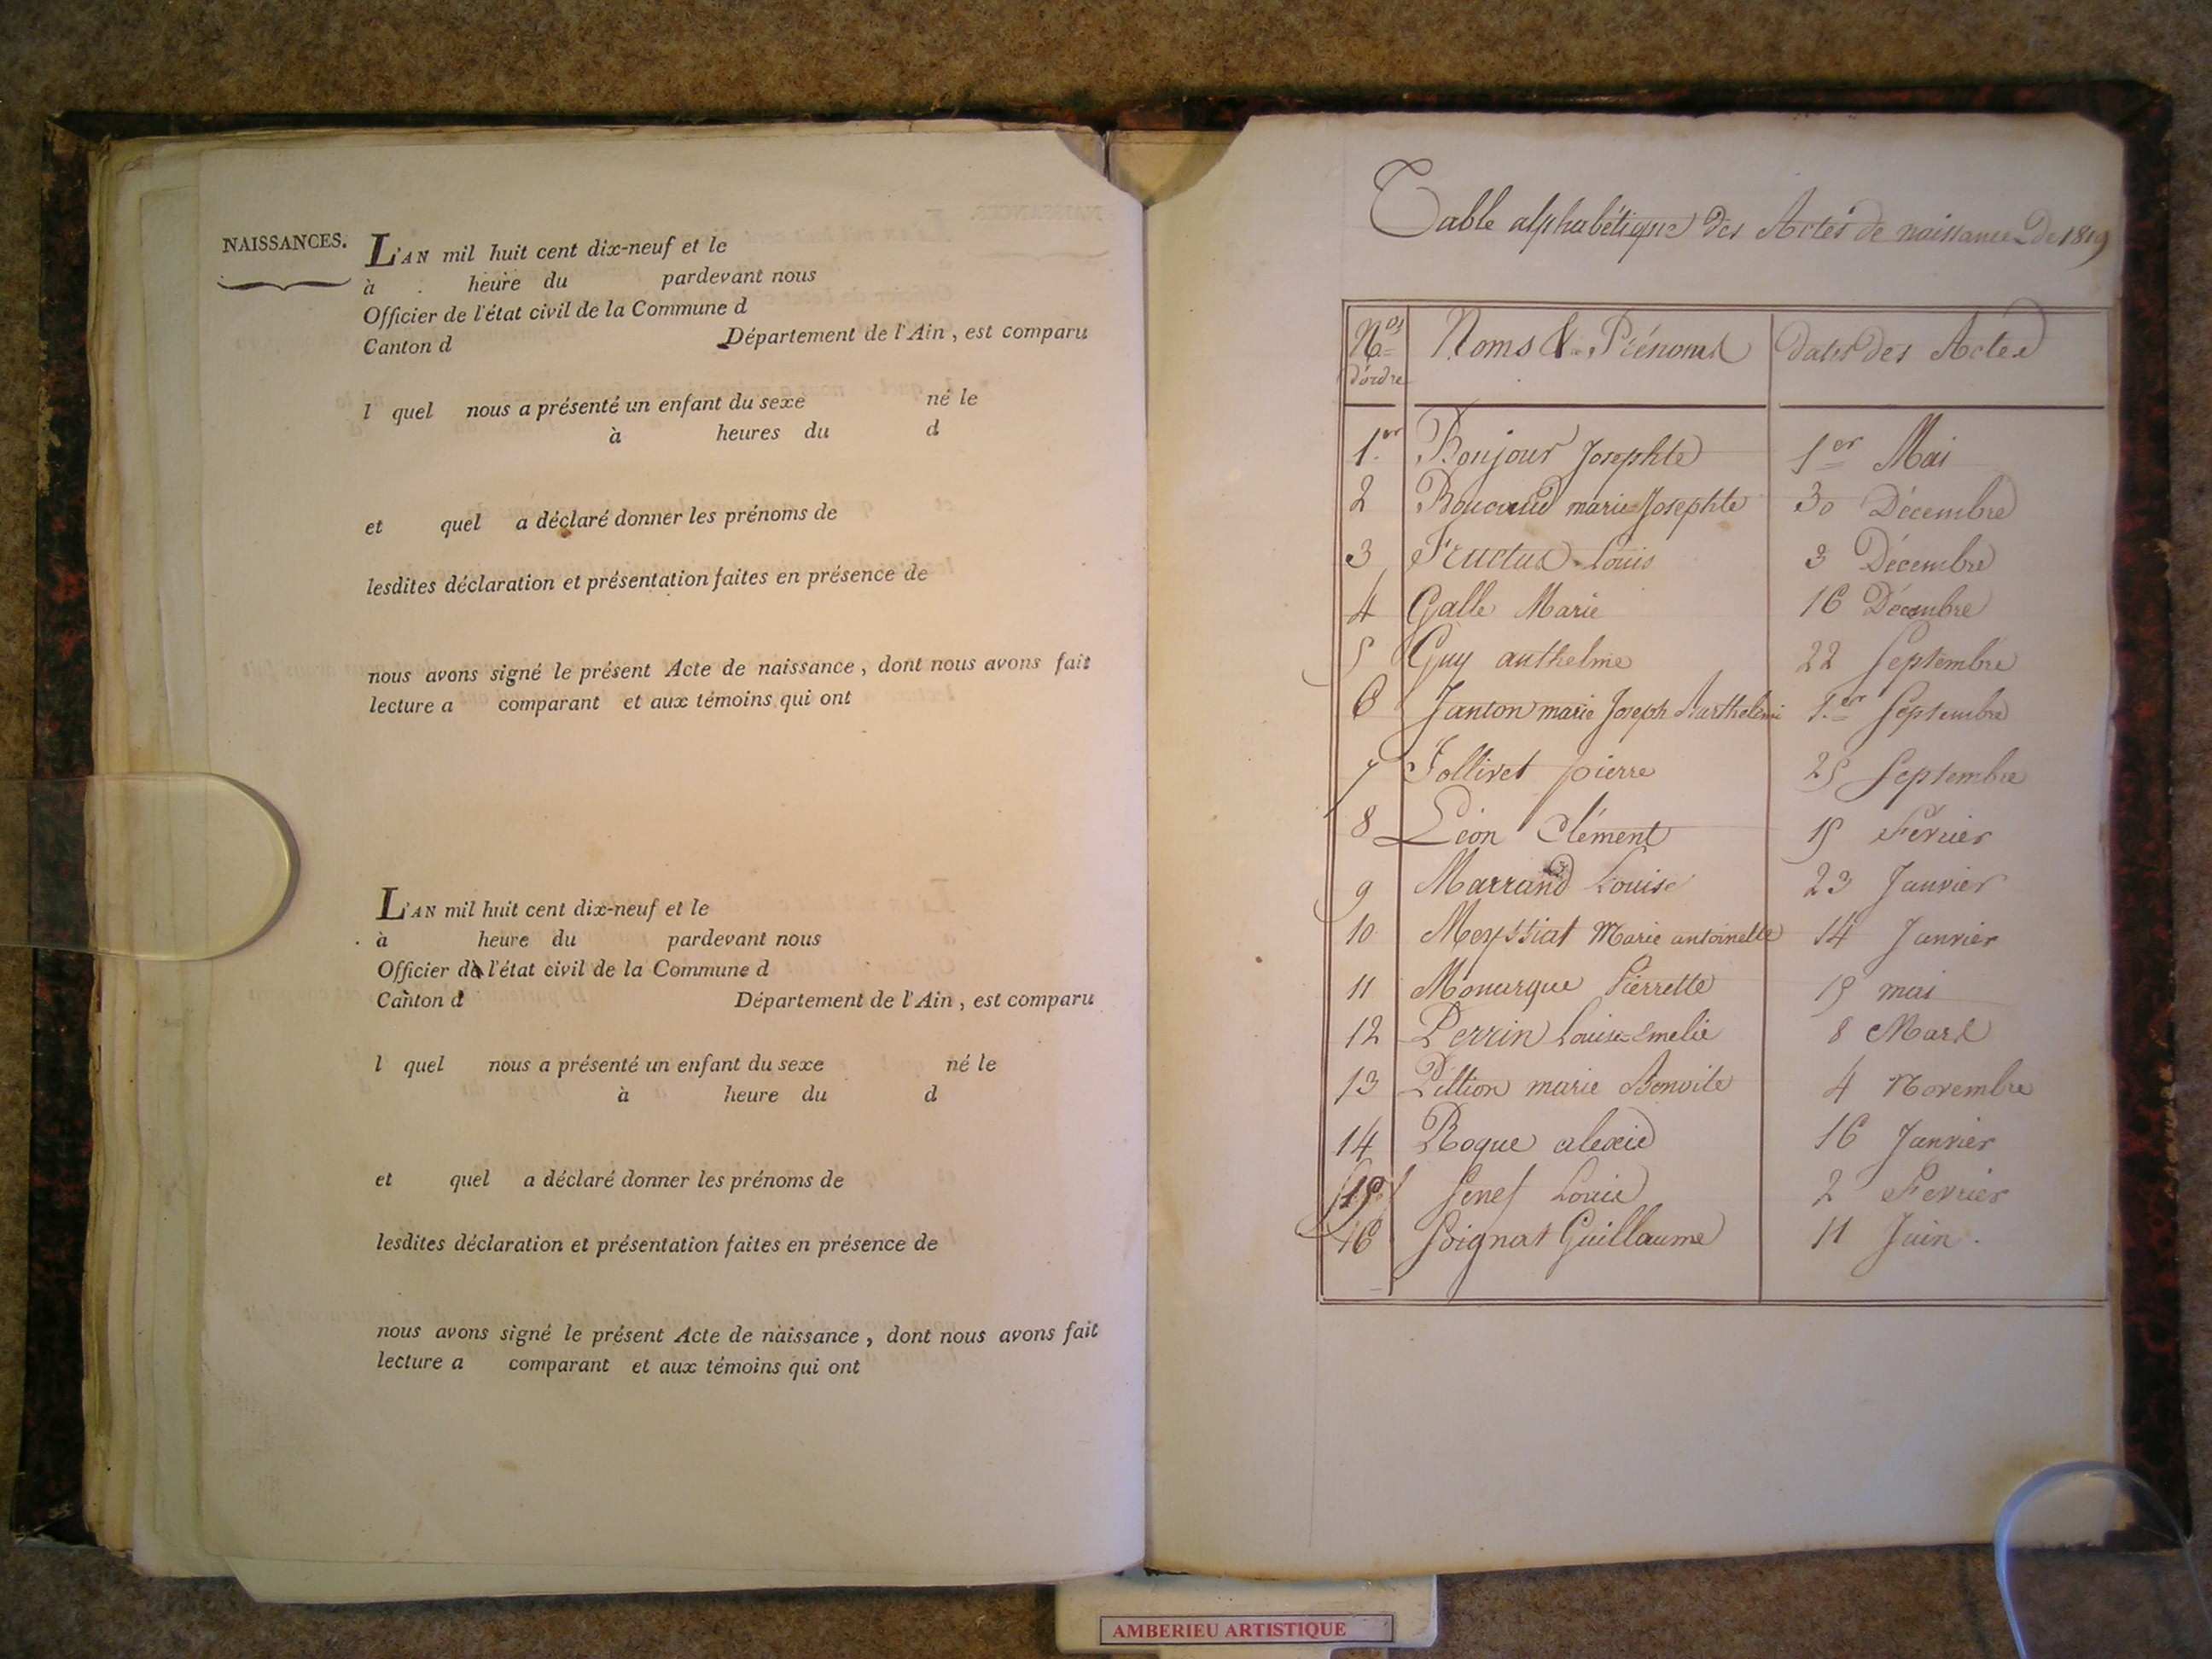 NAISSANCES.
L'AN mil huit cent dix-neuf et le
à heure du pardevant nous
Officier de l'état civil de la Commune d
Canton d Département de l'Ain, est comparu
l quel nous a présenté un enfant du sexe né le
à heures du d
et quel a déclaré donner les prénoms de
lesdites déclaration et présentation faites en présence de
nous avons signé le présent Acte de naissance, dont nous avons fait
lecture a comparant et aux témoins qui ont
L'AN mil huit cent dix-neuf et le
à heure du pardevant nous
Officier de l'état civil de la Commune d
Canton d Département de l'Ain, est comparu
l quel nous a présenté un enfant du sexe né le
à heure du d
et quel a déclaré donner les prénoms de
lesdites déclaration et présentation faites en présence de
nous avons signé le présent Acte de naissance, dont nous avons fait
lecture a comparant et aux témoins qui ont
Table alphabétique des Actes de naissances de 1819
Nos d'ordre Noms & Prénoms dates des Actes
1er Bonjour Josephte 1er Mai
2 Boucaud marie Josephte 30 Décembre
3 Fructus Louis 3 Décembre
4 Galle Marie 16 Décembre
5 Guy anthelme 22 Septembre
6 Janton marie Joseph Barthelemi 1.er Septembre
7 Jollivet pierre 25 Septembre
8 Léon Clément 15 Février
9 Marrand Louise 23 Janvier
10 Meyssiat Marie antoinette 14 Janvier
11 Monarque Pierrette 15 mai
12 Perrin Louise Emelie 8 Mars
13 Pittion marie Benoite 4 Novembre
14 Roque alexis 16 Janvier
15 Senes Louis 2 Fevrier
16 Soignat Guillaume 11 Juin.
AMBERIEU ARTISTIQUE